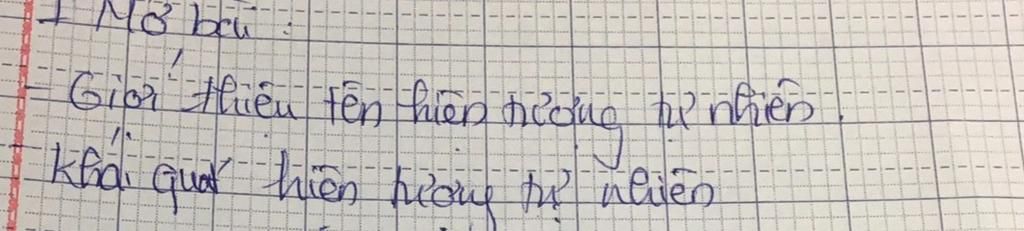 I Mở bài :
- Giới thiệu tên hiện tượng tự nhiên
- Khái quát hiện tượng tự nhiên